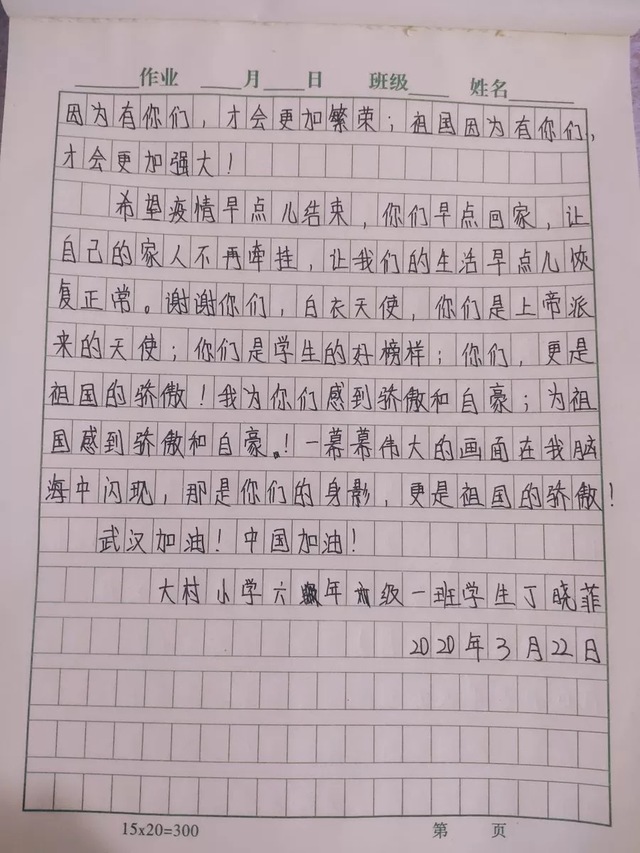 作业 月 日 班级 姓名
因为有你们，才会更加繁荣；祖国因为有你们，
才会更加强大！
希望疫情早点儿结束，你们早点回家，让
自己的家人不再牵挂，让我们的生活早点儿恢
复正常。谢谢你们，白衣天使，你们是上帝派
来的天使；你们是学生的好榜样；你们，更是
祖国的骄傲！我为你们感到骄傲和自豪；为祖
国感到骄傲和自豪！一幕幕伟大的画面在我脑
海中闪现，那是你们的身影，更是祖国的骄傲！
武汉加油！中国加油！
大村小学六年级一班学生丁晓菲
2020年3月22日
15x20=300 第 页